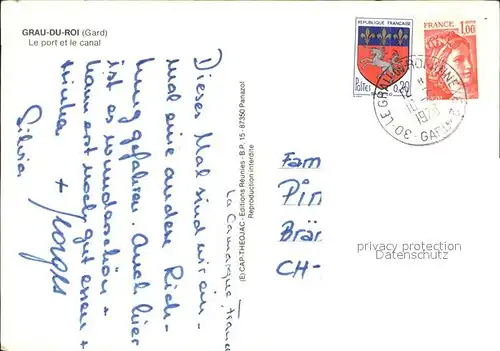 GRAU-DU-ROI (Gard)
Le port et le canal
Dieses Mal sind wir ein-
mal eine andere Rich-
tung gefahren. Auch hier
ist es wunderschön +
kann erst noch gut essen +
trinken +
Silvia
La Camargue, France
(E) CAP-THEOJAC - Editions Réunies - B.P. 15 - 87350 Panazol
Reproduction interdite
REPUBLIQUE FRANÇAISE
Postes 0,20
FRANCE
1,00
30 LE GRAU DU ROI
1978
GARD
Fam
Pin
Brär
CH-
privacy protection
Datenschutz